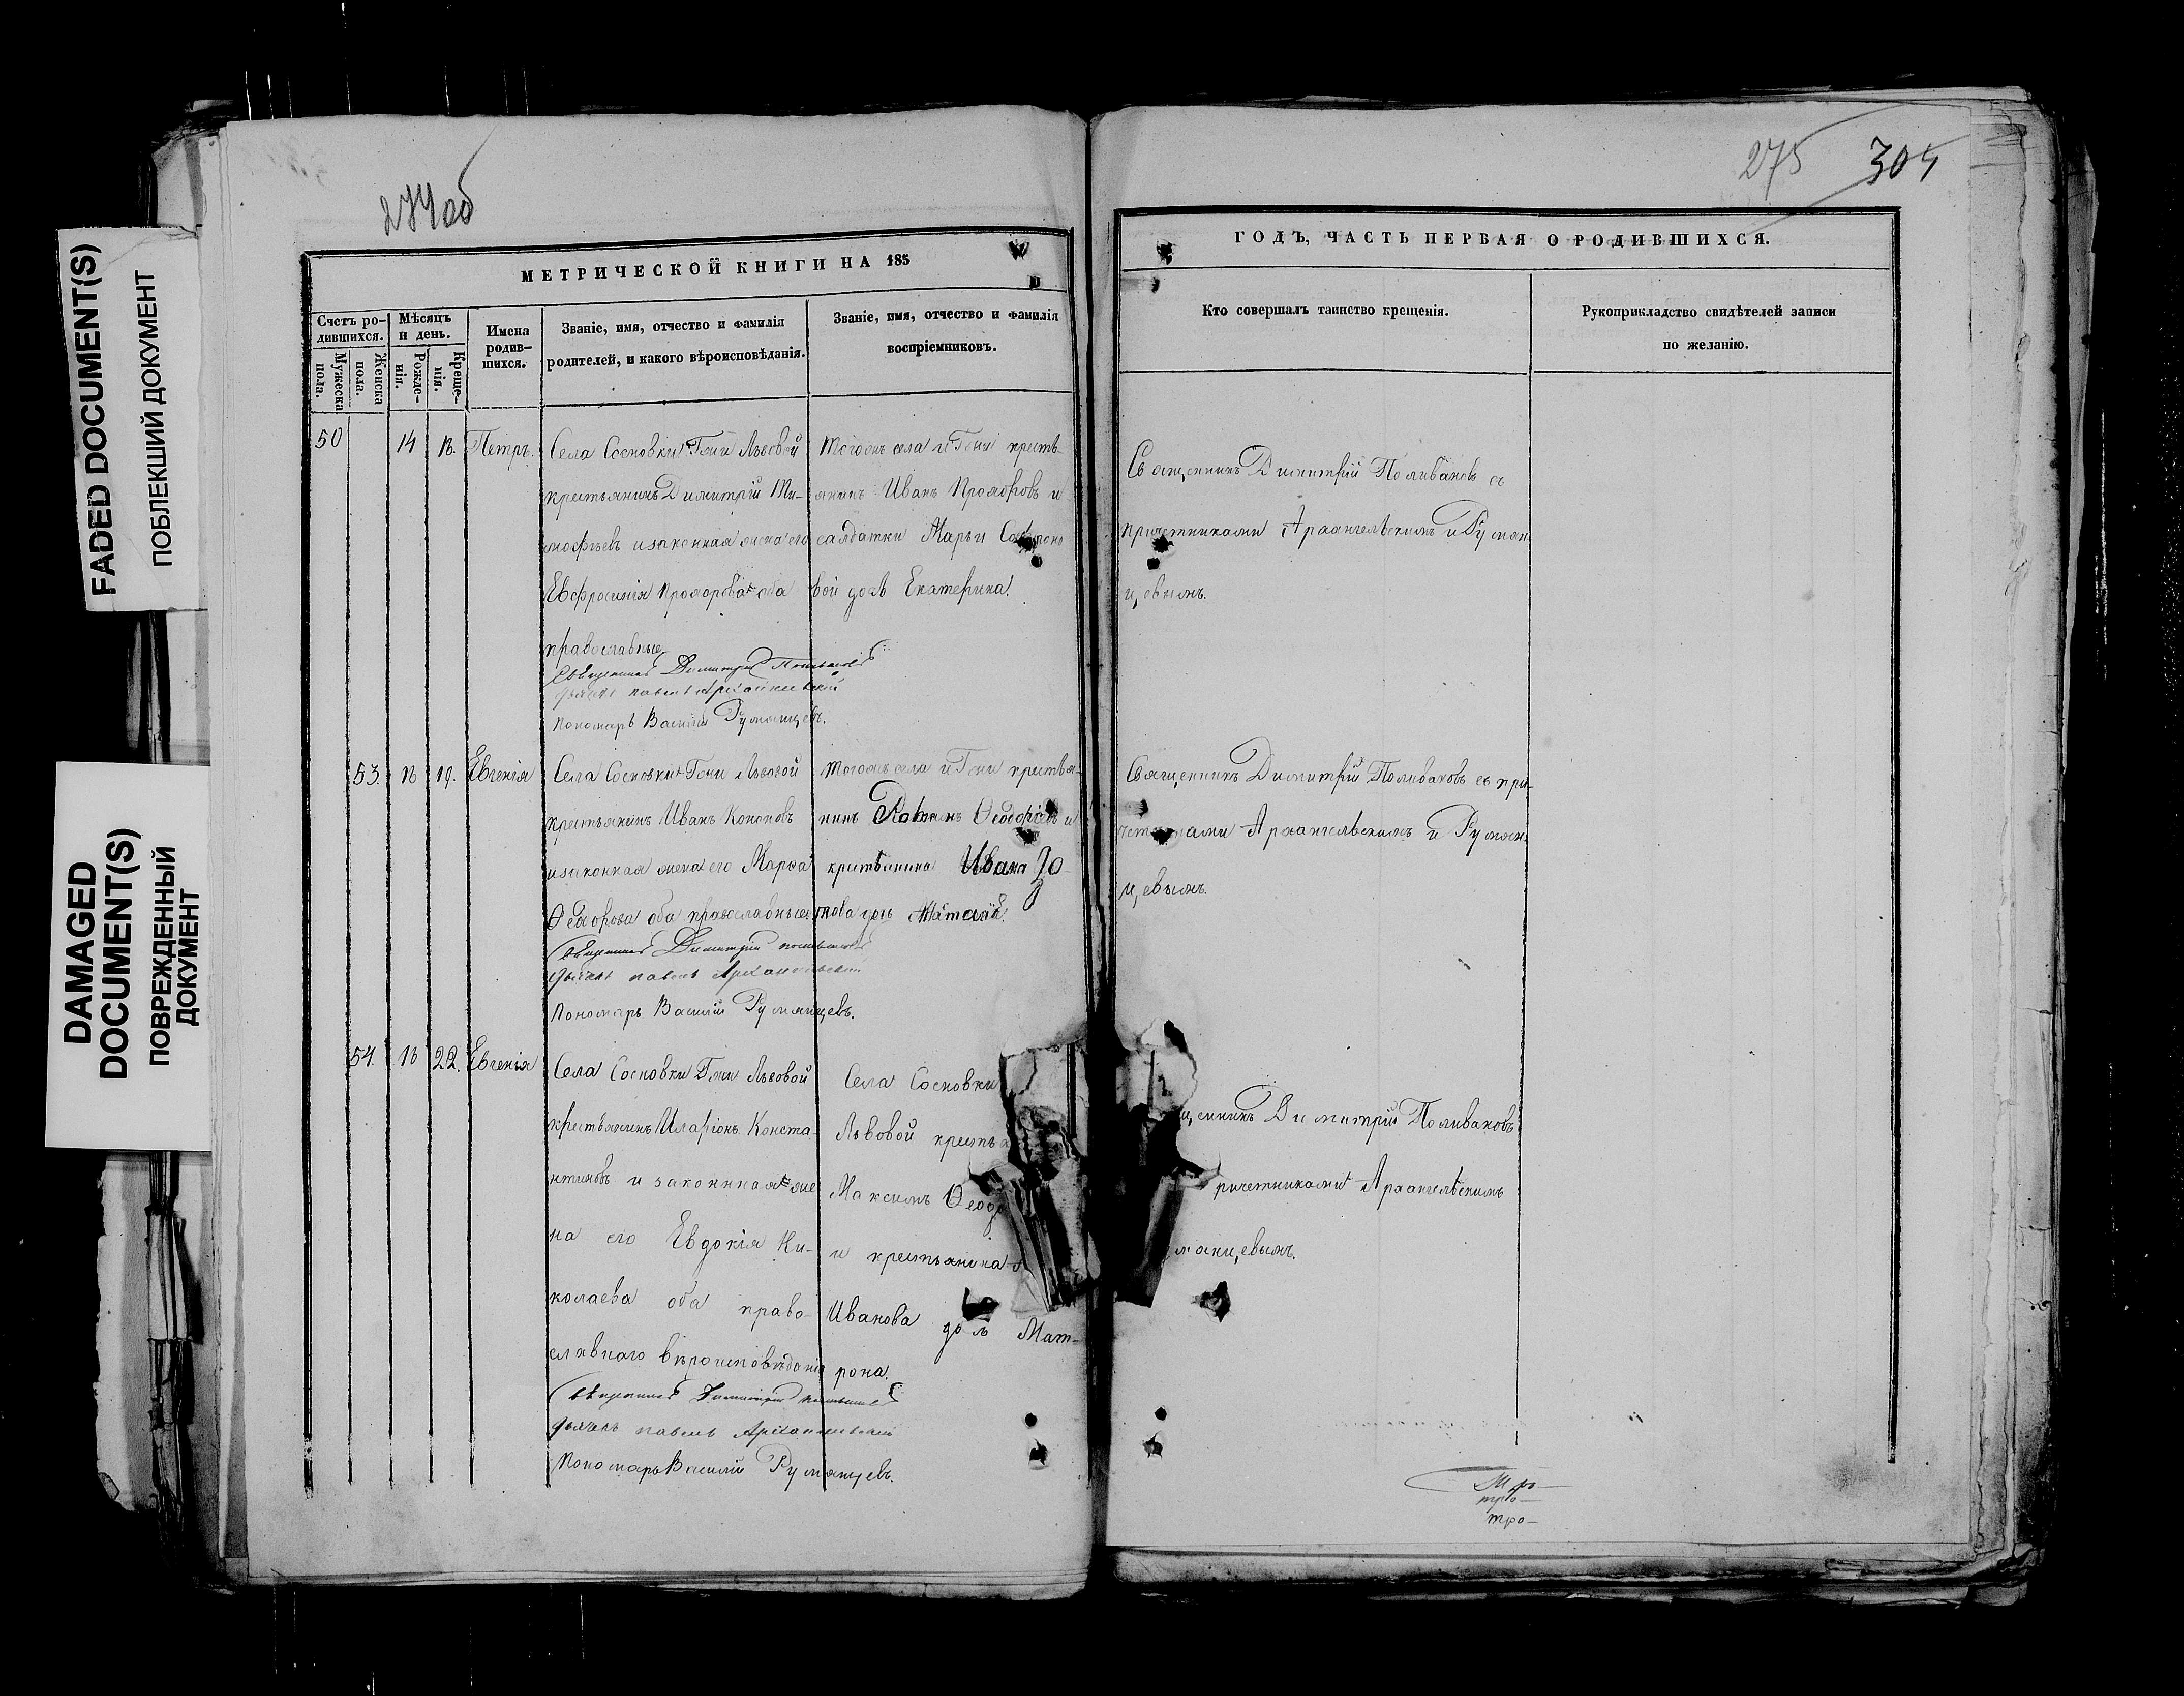 FADED DOCUMENT(S)
ПОБЛЕКШИЙ ДОКУМЕНТ
DAMAGED
DOCUMENT(S)
ПОВРЕЖДЕННЫЙ
ДОКУМЕНТ
274об
МЕТРИЧЕСКОЙ КНИГИ НА 185
Счетъ ро-
дившихся.
Мужеска
пола.
Женска
пола.
Мѣсяцъ
и день.
Рожде-
нія.
Креще-
нія.
Имена
родив-
шихся.
Званіе, имя, отчество и фамилія
родителей, и какого вѣроисповѣданія.
Званіе, имя, отчество и фамилія
воспріемниковъ.
50
14
Петръ.
Села Сосновки Гжи Львовой
крестьянинъ Димитрій Ти-
мофѣевъ и законная жена его
Евфросинія Прохорова оба
православные
Священникъ Димитрій Поливановъ
дьячекъ павелъ Архангельскій
Пономарь Василій Румянцевъ.
тогожъ села и Гжи кресть-
янинъ Иванъ Прохоровъ и
салдатки Марьи
вой дочь Екатерина.
53.
19.
Евгенія
Села Сосновки Гжи Львовой
крестьянинъ Иванъ Кононовъ
и законная жена его Марѳа
Ѳеодорова оба православные
Священникъ Димитрій Поливановъ
дьячекъ павелъ Архангельскій
Пономарь Василій Румянцевъ.
тогожъ села и Гжи крестья-
нинъ Ѳеодоровъ и
крестьянина Ивана
това дочь
54.
22.
Евгенія
Села Сосновки Гжи Львовой
крестьянинъ Иларіонъ Конста-
нтиновъ и законная же
на его Евдокія Ни-
колаева оба право-
славнаго вѣроисповѣданія
Священникъ Димитрій Поливановъ
дьячекъ павелъ Архангельскій
Пономарь Василій Румянцевъ.
Села Сосновки
Львовой крестья
Максимъ Ѳеодо
и крестьянина
Иванова дочь Мат-
рона.
275 304
ГОДЪ, ЧАСТЬ ПЕРВАЯ О РОДИВШИХСЯ.
Кто совершалъ таинство крещенія.
Рукоприкладство свидѣтелей записи
по желанію.
Священникъ Димитрій Поливановъ съ
причетниками Архангельскимъ и Румян
цовымъ.
Священникъ Димитрій Поливановъ съ при-
четниками Архангельскимъ и Румян-
цевымъ.
щенникъ Димитрій Поливановъ
ричетниками Архангельскимъ
мянцевымъ.
тро-
тро-